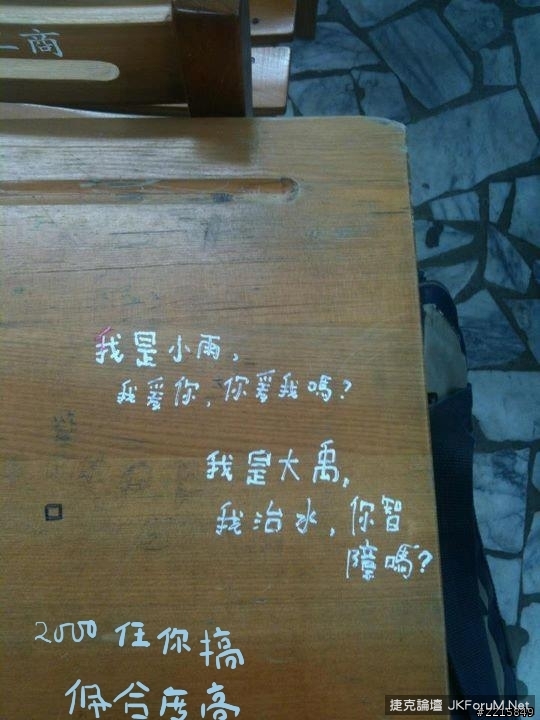 二商
我是小雨,
我爱你,你爱我嗎?
我是大禹,
我治水,你智
障嗎?
2000 任你搞
佩合度高
捷克論壇 JKForuM.Net
#2215849